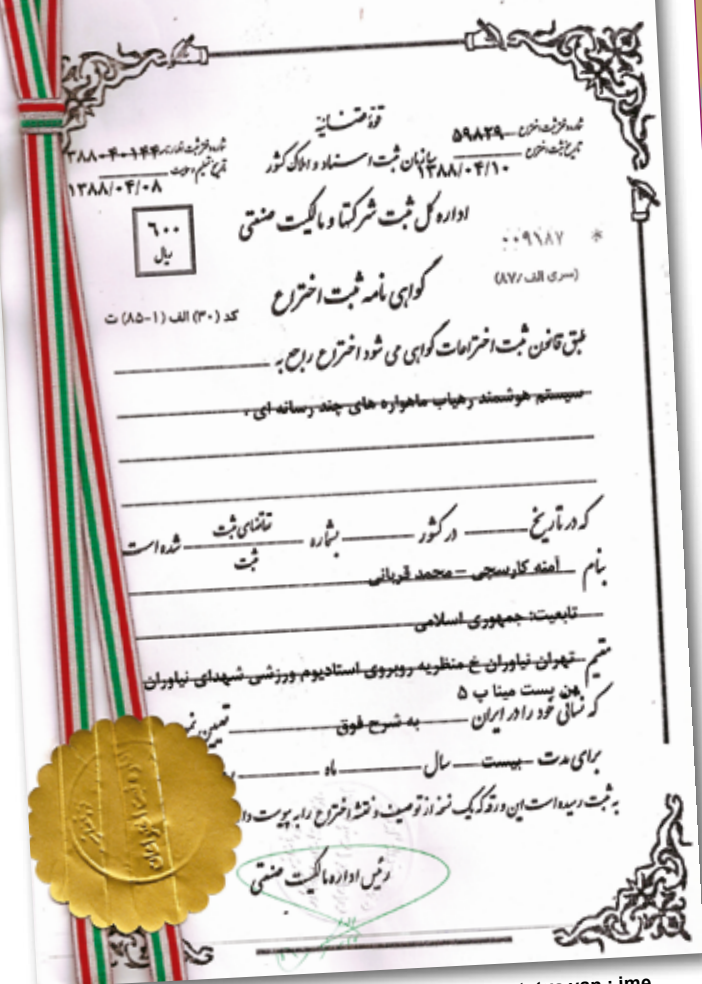 قوه قضائیه
سازمان ثبت اسناد و املاک کشور
شماره ثبت اختراع ۵۹۸۲۹
تاریخ ثبت اختراع ۱۳۸۸/۰۴/۱۰
شماره ثبت اظهارنامه
تاریخ تسلیم
۱۳۸۸/۰۴/۰۸
اداره کل ثبت شرکتها و مالکیت صنعتی
۶۰۰
ریال
* ۰۰۹۱۸۷
(سری الف/۸۷)
گواهی نامه ثبت اختراع
کد (۳۰) الف (۱-۸۵) ت
طبق قانون ثبت اختراعات گواهی می شود اختراع راجع به
سیستم هوشمند رهیاب ماهواره های چند رسانه ای .
که در تاریخ در کشور بشماره تقاضای ثبت
ثبت شده است
بنام آمنه کارسجی - محمد قربانی
تابعیت: جمهوری اسلامی
مقیم تهران نیاوران خ منظریه روبروی استادیوم ورزشی شهدای نیاوران
بن بست مینا پ ۵
که نشانی خود را در ایران به شرح فوق تعیین
برای مدت بیست سال ماه
به ثبت رسیده است این ورقه که یک نسخه از توصیف و نقشه اختراع را به پیوست
رئیس اداره مالکیت صنعتی